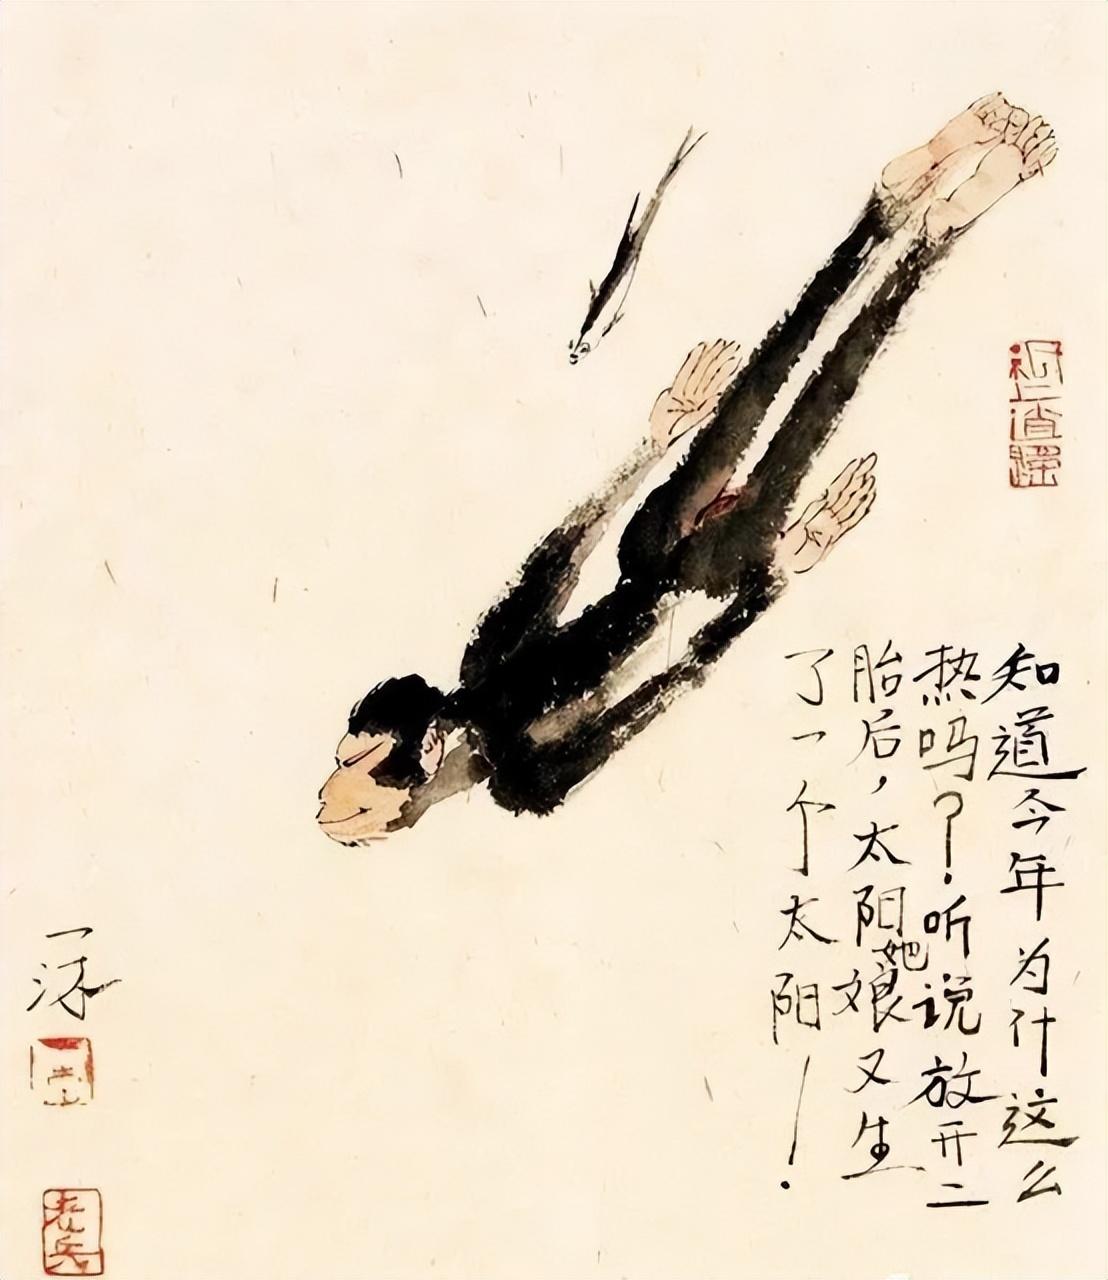 知道今年为什这么
热吗？！听说放开二
胎后，太阳她娘又生
了一个太阳！
一沫
老兵